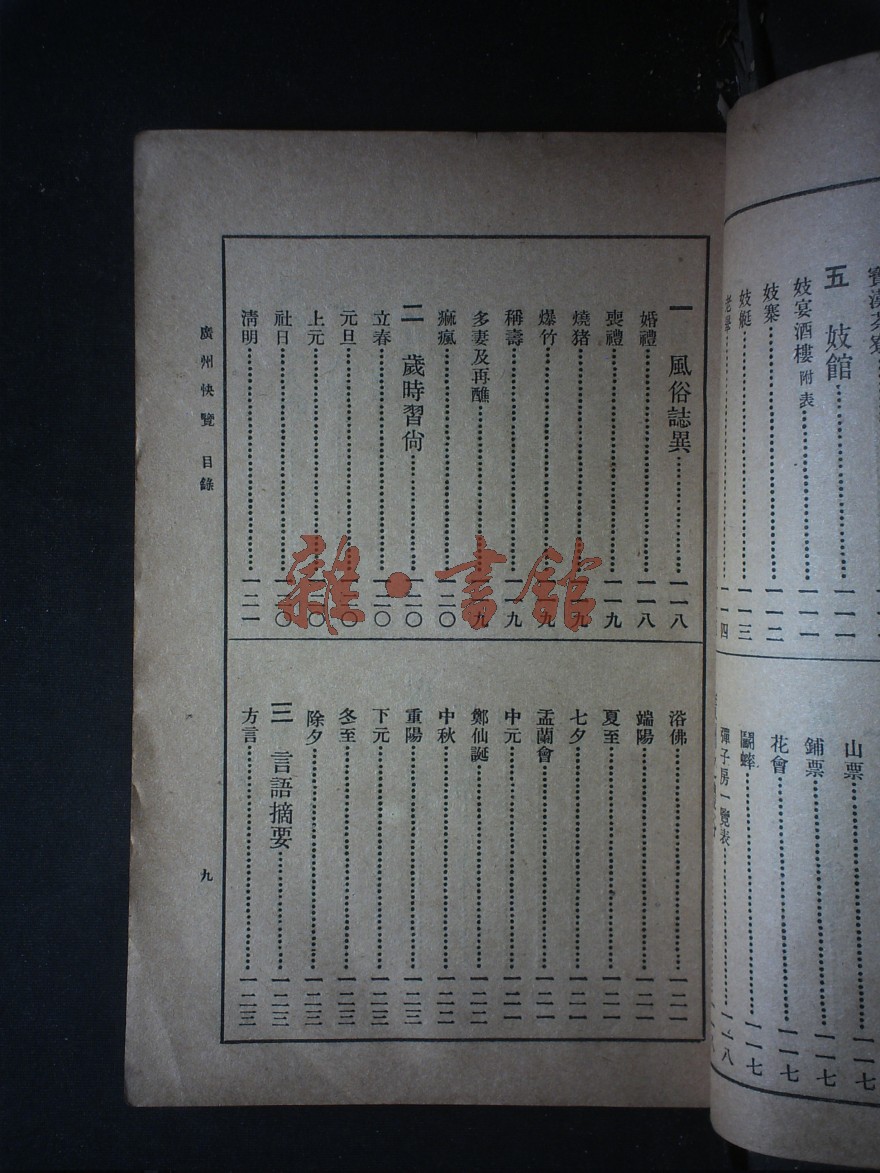 五 妓館……一一一
妓宴酒樓附表……一一一
妓寨……一一二
妓艇……一一三
山票……一一七
鋪票……一一七
花會……一一七
鬭蟀……一一七
彈子房一覽表……一一八
一 風俗誌異……一一八
婚禮……一一八
喪禮……一一九
燒猪……一一九
爆竹……一一九
稱壽……一一九
多妻及再醮……一一九
痲瘋……一二〇
二 歲時習尙……一二〇
立春……一二〇
元旦……一二〇
上元……一二〇
社日……一二〇
清明……一二一
浴佛……一二一
端陽……一二一
夏至……一二一
七夕……一二一
盂蘭會……一二一
中元……一二一
鄭仙誕……一二二
中秋……一二二
重陽……一二三
下元……一二三
冬至……一二三
除夕……一二三
三 言語摘要……一二三
方言……一二三
廣州快覽 目錄
九
雜·書館